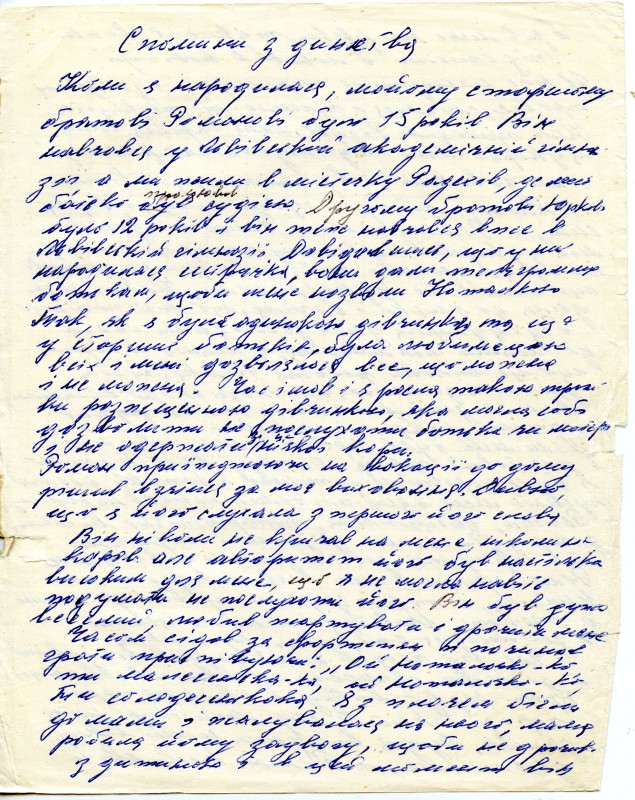 Спомини з динства
Коли я народилася, мойому старшому
братові Романові було 15 років. Він
навчався у Львівській академічній гімна-
зії а ми жили в містечку Радехів, де мій
батько працював суддею. Другому братові Юркові
було 12 років і він теж навчався вже в
Львівській гімназії. Довідавшись, що у них
народилася сестричка, вони дали телеграму
батькам, щоби мене назвали Наталкою
Так, як я була одинокою дівчинкою та ще
у старших батьків, була любимецею
всіх і мені дозволялося все, що можна
і не можна. Час ішов і я росла такою трохи
розпещеною дівчинкою, яка могла собі
дозволити не послухати батька чи матері
і не одержати ніякої кари.
Роман приїзджаючи на вакації до дому
рішив взятись за моє виховання. Дивно,
що я його слухала з першого його слова
Він ніколи не кричав на мене, ніколи не
карав але авторитет його був настільки
високим для мене, що я не могла навіть
подумати не послухати його. Він був дуже
веселий, любив жартувати і дрочити мене
Часом сідав за фортепян і починав
грати приспівуючи: „Ой Наталонько-ко,
ти малесенька-ка, ой Наталонько-ко,
ти солоденькака Я з плачем бігла
до мами і жалувалася на нього, мама
робила йому зауваги, щоби не дрочив-
з дитиною а в цей момент він